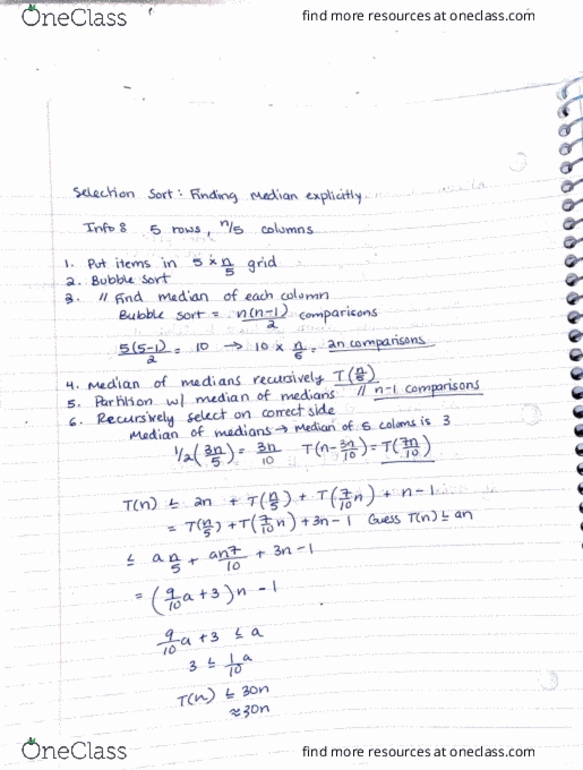 OneClass
find more resources at oneclass.com
Selection Sort: Finding Median explicitly
Info 8 5 rows, n/5 columns
1. Put items in 5 × n/5 grid
2. Bubble sort
3. // Find median of each column
Bubble sort = n(n-1)/2 comparisons
5(5-1)/2 = 10 → 10 × n/5 = 2n comparisons
4. Median of medians recursively T(n/5)
5. Partition w/ median of medians // n-1 comparisons
6. Recursively select on correct side
Median of medians → median of 5 coloms is 3
1/2(3n/5) = 3n/10 T(n-3n/10) = T(7n/10)
T(n) ≤ 2n + T(n/5) + T(7/10 n) + n-1
= T(n/5) + T(7/10 n) + 3n-1 Guess T(n) ≤ an
≤ a n/5 + an7/10 + 3n-1
= (9/10 a + 3)n - 1
9/10 a + 3 ≤ a
3 ≤ 1/10 a
T(n) ≤ 30n
≈30n
OneClass
find more resources at oneclass.com